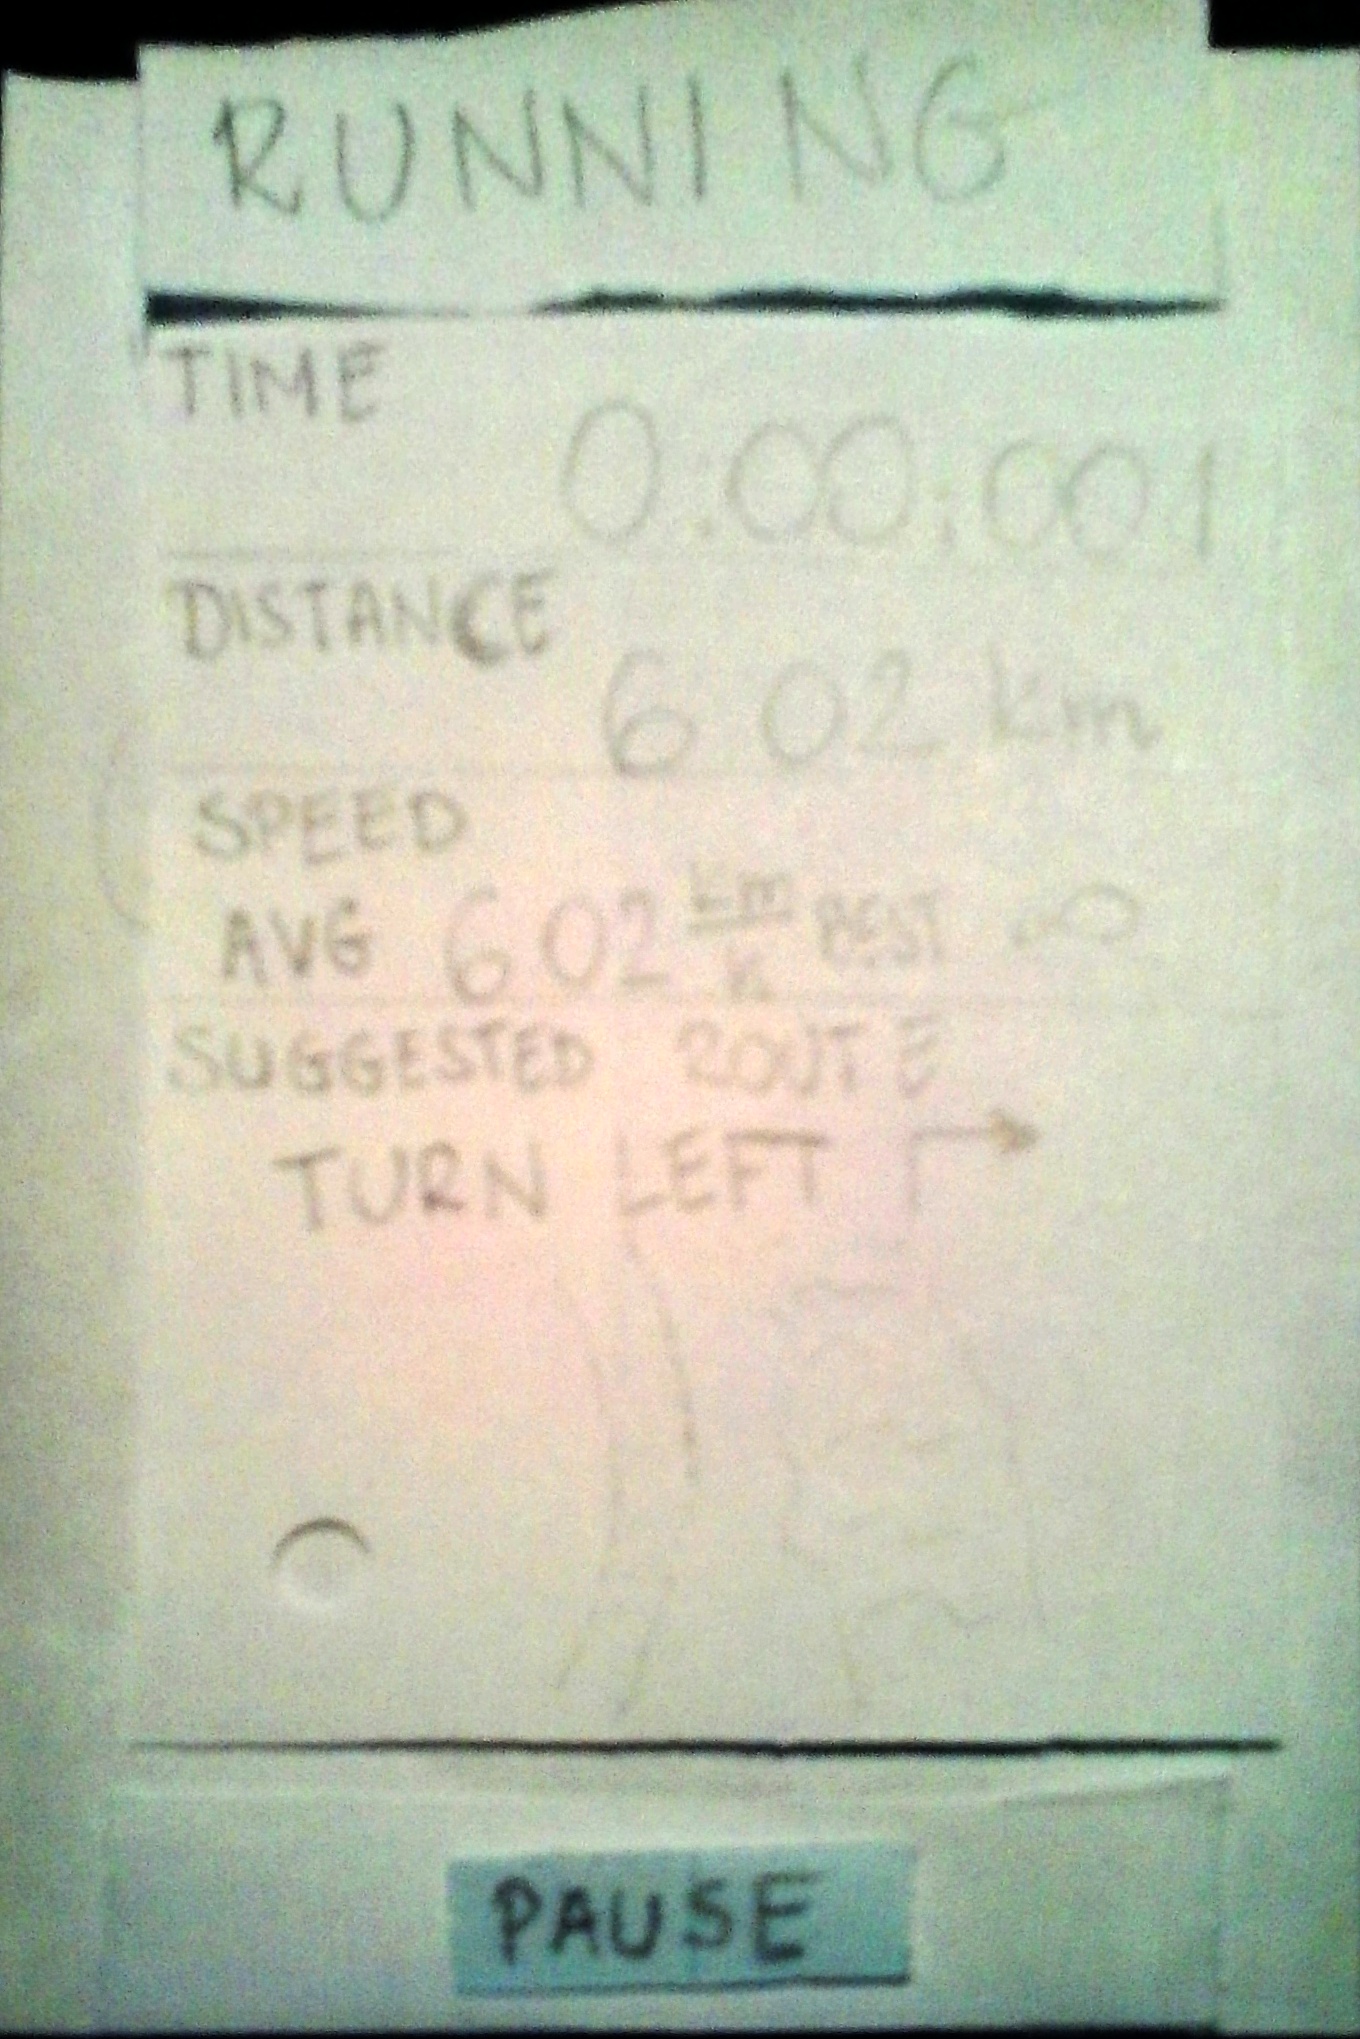 RUNNING
TIME
0:00:001
DISTANCE
6 02 km
SPEED
AVG 6 02 km/h BEST ∞
SUGGESTED ROUTE
TURN LEFT
PAUSE